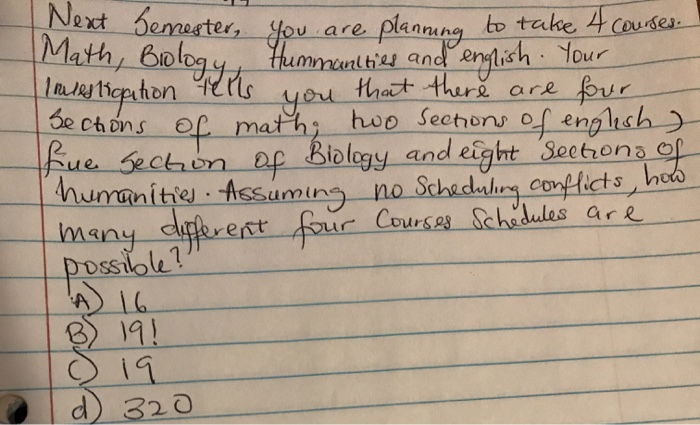 Next Semester, you are planning to take 4 courses.
Math, Biology, Hummanities and english. Your
Investigation tells you that there are four
Sections of math, two Sections of english,
five section of Biology and eight Sections of
humanities. Assuming no Scheduling conflicts, how
many different four Courses Schedules are
possible?
A) 16
B) 19!
C) 19
d) 320